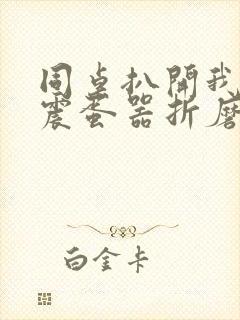 同桌扒開我
震蛋器折磨
白金卡